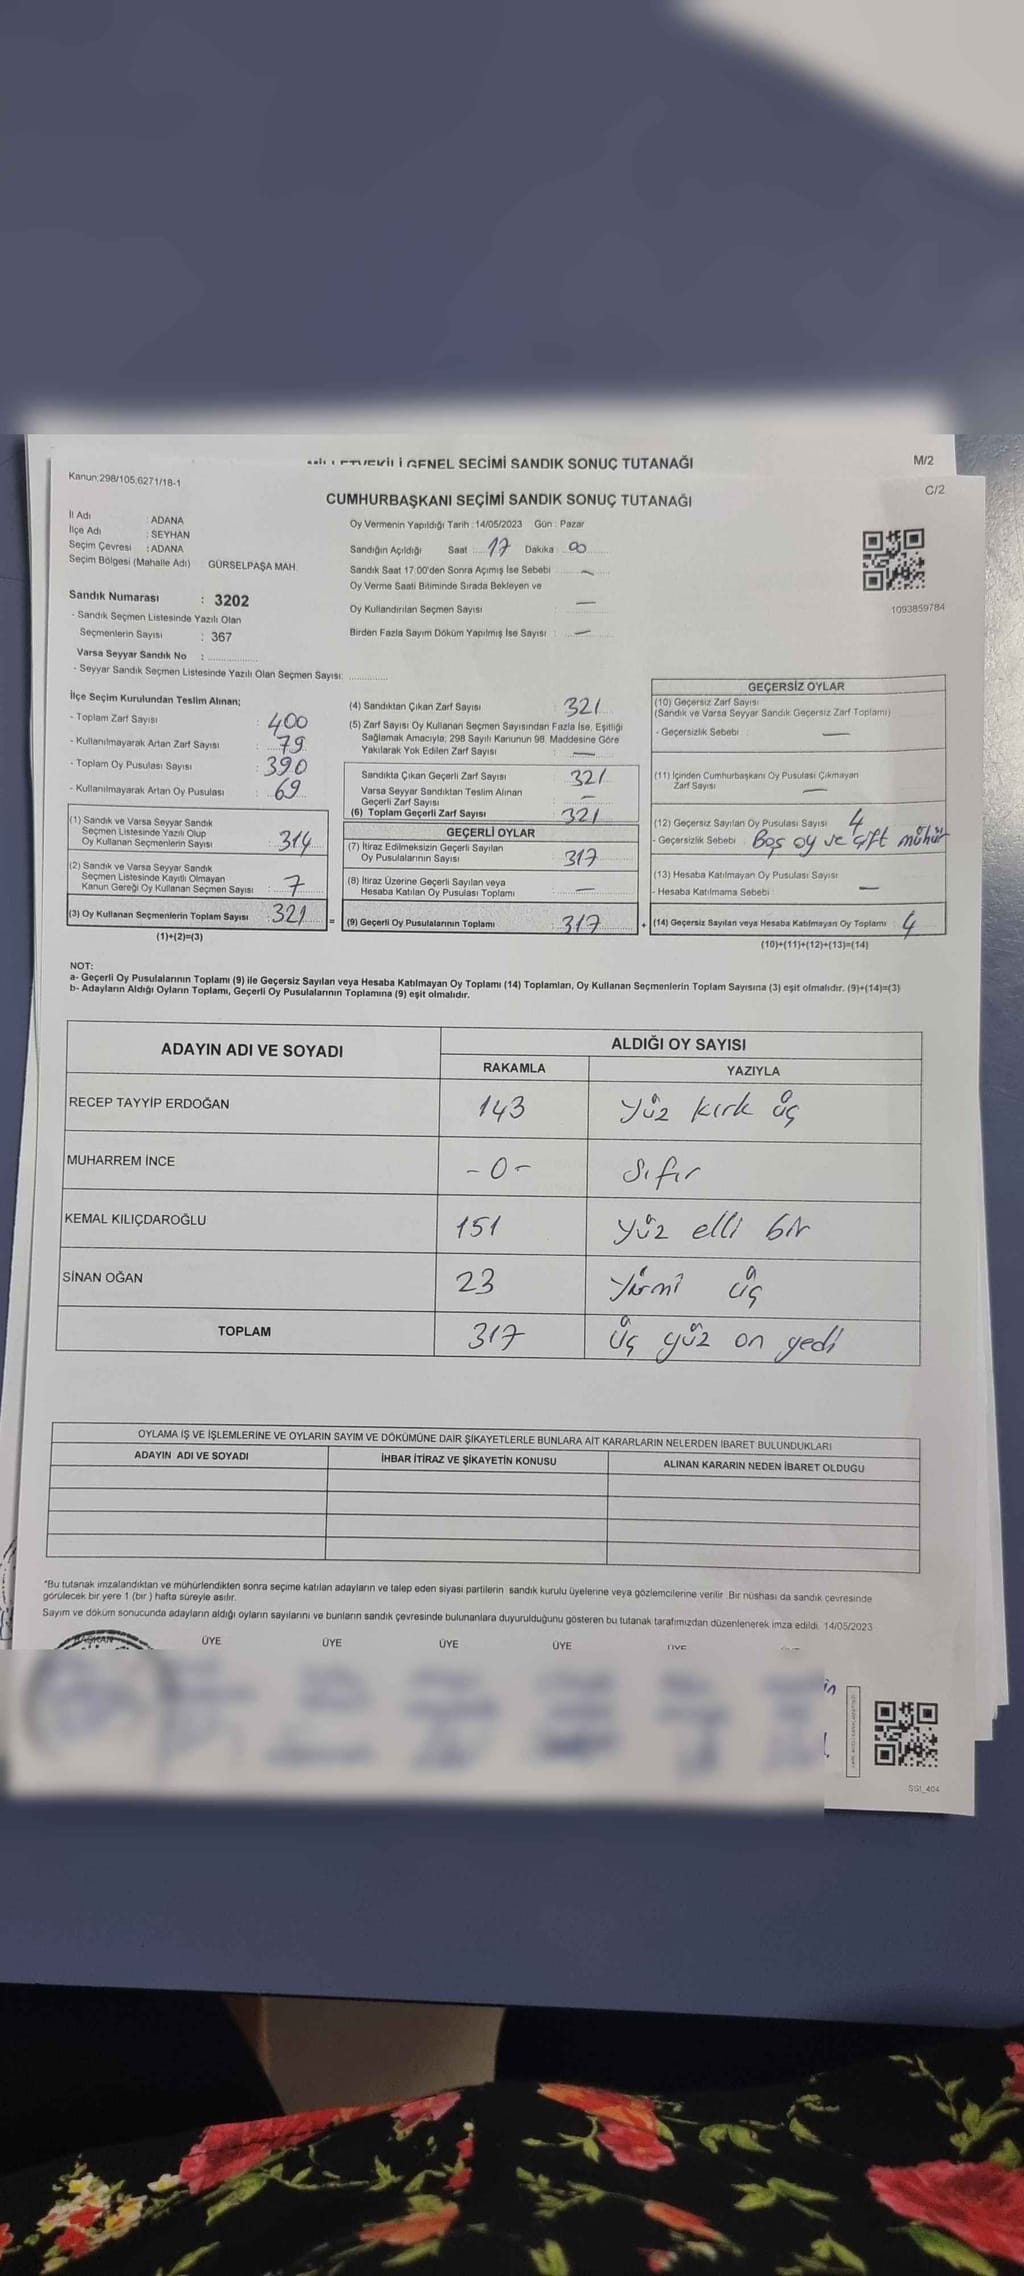 GENEL SECİMİ SANDIK SONUÇ TUTANAĞI
M/2
Kanun:298/105;6271/18-1
C/2
CUMHURBAŞKANI SEÇİMİ SANDIK SONUÇ TUTANAĞI
İl Adı : ADANA
İlçe Adı : SEYHAN
Seçim Çevresi : ADANA
Seçim Bölgesi (Mahalle Adı) GÜRSELPAŞA MAH.
Oy Vermenin Yapıldığı Tarih : 14/05/2023 Gün : Pazar
Sandığın Açıldığı Saat : 17 Dakika : 00
Sandık Saat 17:00'den Sonra Açımış İse Sebebi : —
Oy Verme Saati Bitiminde Sırada Bekleyen ve
Oy Kullandırılan Seçmen Sayısı : —
Birden Fazla Sayım Döküm Yapılmış İse Sayısı : —
1093859784
Sandık Numarası : 3202
- Sandık Seçmen Listesinde Yazılı Olan
Seçmenlerin Sayısı : 367
Varsa Seyyar Sandık No :
- Seyyar Sandık Seçmen Listesinde Yazılı Olan Seçmen Sayısı:
İlçe Seçim Kurulundan Teslim Alınan;
- Toplam Zarf Sayısı : 400
- Kullanılmayarak Artan Zarf Sayısı : 79
- Toplam Oy Pusulası Sayısı : 390
- Kullanılmayarak Artan Oy Pusulası : 69
(1) Sandık ve Varsa Seyyar Sandık
Seçmen Listesinde Yazılı Olup
Oy Kullanan Seçmenlerin Sayısı : 314
(2) Sandık ve Varsa Seyyar Sandık
Seçmen Listesinde Kayıtlı Olmayan
Kanun Gereği Oy Kullanan Seçmen Sayısı : 7
(3) Oy Kullanan Seçmenlerin Toplam Sayısı : 321
(1)+(2)=(3)
(4) Sandıktan Çıkan Zarf Sayısı : 321
(5) Zarf Sayısı Oy Kullanan Seçmen Sayısından Fazla İse, Eşitliği
Sağlamak Amacıyla; 298 Sayılı Kanunun 98. Maddesine Göre
Yakılarak Yok Edilen Zarf Sayısı : —
Sandıkta Çıkan Geçerli Zarf Sayısı 321
Varsa Seyyar Sandıktan Teslim Alınan
Geçerli Zarf Sayısı : —
(6) Toplam Geçerli Zarf Sayısı 321
GEÇERLİ OYLAR
(7) İtiraz Edilmeksizin Geçerli Sayılan
Oy Pusulalarının Sayısı : 317
(8) İtiraz Üzerine Geçerli Sayılan veya
Hesaba Katılan Oy Pusulası Toplamı : —
= (9) Geçerli Oy Pusulalarının Toplamı : 317
GEÇERSİZ OYLAR
(10) Geçersiz Zarf Sayısı
(Sandık ve Varsa Seyyar Sandık Geçersiz Zarf Toplamı)
- Geçersizlik Sebebi : —
(11) İçinden Cumhurbaşkanı Oy Pusulası Çıkmayan
Zarf Sayısı : —
(12) Geçersiz Sayılan Oy Pusulası Sayısı : 4
- Geçersizlik Sebebi : Boş oy ve çift mühür
(13) Hesaba Katılmayan Oy Pusulası Sayısı :
- Hesaba Katılmama Sebebi : —
+ (14) Geçersiz Sayılan veya Hesaba Katılmayan Oy Toplamı : 4
(10)+(11)+(12)+(13)=(14)
NOT:
a- Geçerli Oy Pusulalarının Toplamı (9) ile Geçersiz Sayılan veya Hesaba Katılmayan Oy Toplamı (14) Toplamları, Oy Kullanan Seçmenlerin Toplam Sayısına (3) eşit olmalıdır. (9)+(14)=(3)
b- Adayların Aldığı Oyların Toplamı, Geçerli Oy Pusulalarının Toplamına (9) eşit olmalıdır.
ADAYIN ADI VE SOYADI
ALDIĞI OY SAYISI
RAKAMLA YAZIYLA
RECEP TAYYİP ERDOĞAN 143 yüz kırk üç
MUHARREM İNCE -0- Sıfır
KEMAL KILIÇDAROĞLU 151 yüz elli bir
SİNAN OĞAN 23 yirmi üç
TOPLAM 317 üç yüz on yedi
OYLAMA İŞ VE İŞLEMLERİNE VE OYLARIN SAYIM VE DÖKÜMÜNE DAİR ŞİKAYETLERLE BUNLARA AİT KARARLARIN NELERDEN İBARET BULUNDUKLARI
ADAYIN ADI VE SOYADI İHBAR İTİRAZ VE ŞİKAYETİN KONUSU ALINAN KARARIN NEDEN İBARET OLDUĞU
*Bu tutanak imzalandıktan ve mühürlendikten sonra seçime katılan adayların ve talep eden siyasi partilerin sandık kurulu üyelerine veya gözlemcilerine verilir. Bir nüshası da sandık çevresinde
görülecek bir yere 1 (bir ) hafta süreyle asılır.
Sayım ve döküm sonucunda adayların aldığı oyların sayılarını ve bunların sandık çevresinde bulunanlara duyurulduğunu gösteren bu tutanak tarafımızdan düzenlenerek imza edildi. 14/05/2023
BAŞKAN ÜYE ÜYE ÜYE ÜYE ÜYE
SSI_404